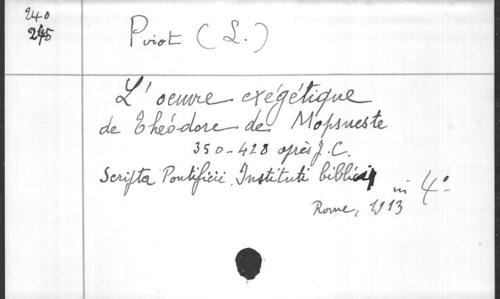 240
245
Pirot (L.)
L'oeuvre exégétique
de Théodore de Mopsueste
350-428 après J.C.
Scripta Pontificii Instituti biblici in 4°
Rome, 1913